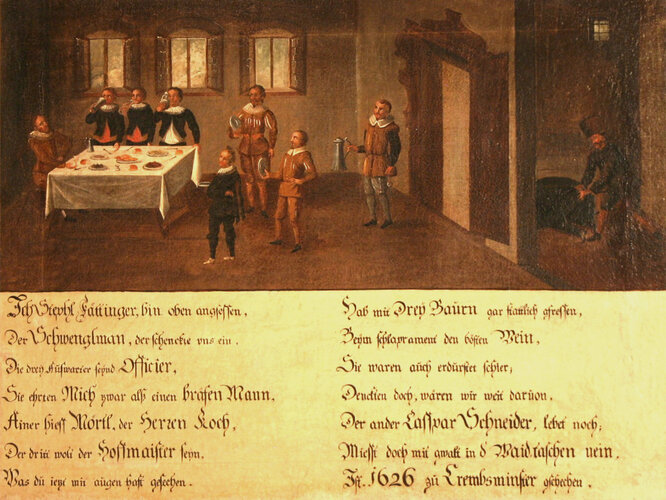 Ich Stephl Fättinger, bin oben angsessen,
Der Schwenglman, der schenckte vns ein.
Die drey Aufwarter seynd Officier,
Sie ehrten Mich zwar alß einen brafen Mann.
Ainer hiess Mörtl, der Herren Koch,
Der drit wolt der Hoffmaister seyn.
Was dü iezt mit aügen hast gesechen.
Hab mit Drey Baürn gar stattlich gfressen,
Beym schlaprament den bösten Wein,
Sie waren auch erdürstet schier;
Denckten doch, wären wir weit darüon.
Der ander Casspar Schneider, lebet noch;
Miesst doch mit gwalt in d'Waidtaschen nein.
Ist 1626 zü Crembsminster gschechen.